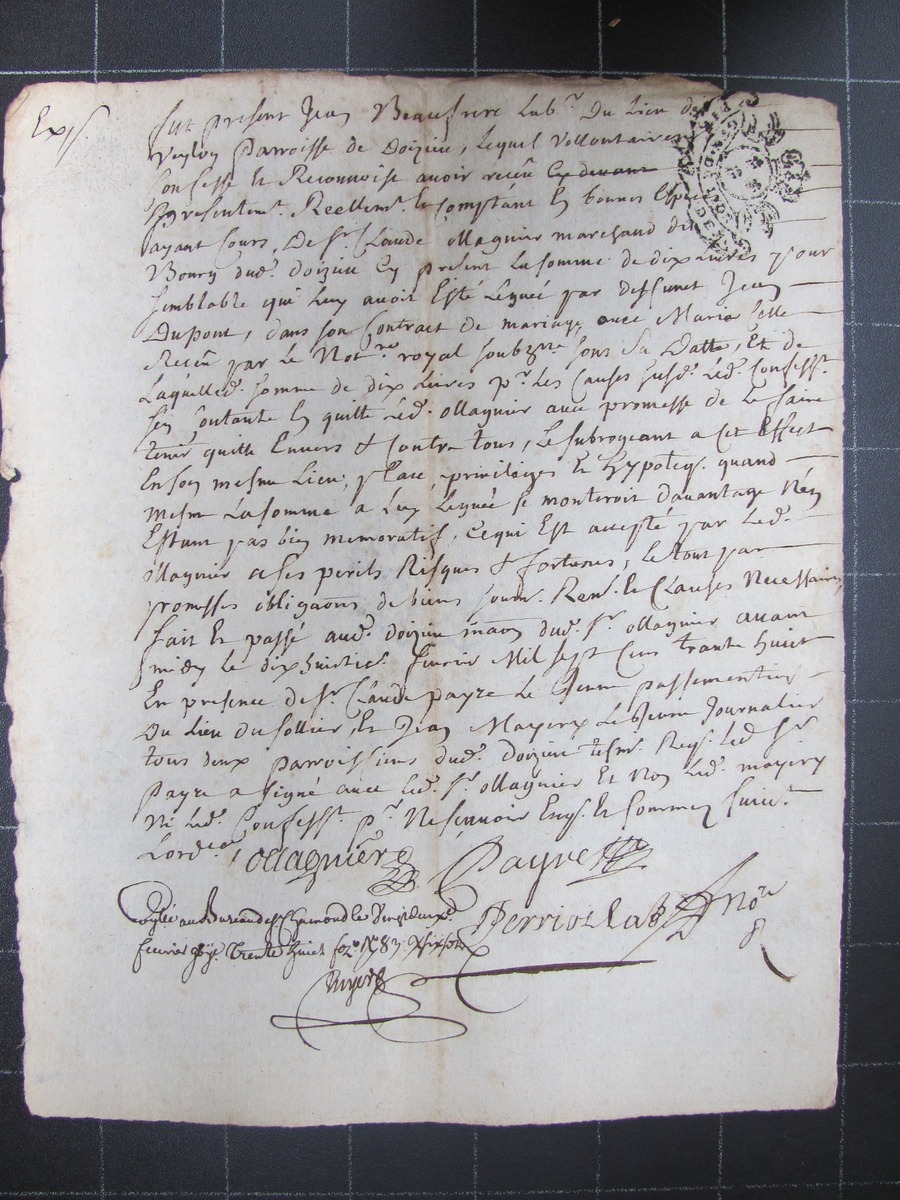 Exp.
Fut présent Jean Beaufrere Lab.r Du Lieu de
parroisse de Doizieu, Lequel Vollontairem.t
Confesse et Reconnoise avoir receu
presentem.t Reellem.t et Comptant En bonnes Especes
ayant Cours, De S.r Claude Ollagnier marchand du
Bourg dud. doizieu Ey présent La somme de dix Livres pour
semblable qui Luy avoit Esté Leguée par deffunct Jean
Dupont, dans son Contract de mariage avec Marie
Receu par Le Not.re royal soubz.né sous sa Datte, Et de
Laquelled. somme de dix Livres p.r Les Causes susd. Led. Confess.t
s'en Contante En quitte Led. Ollagnier avec promesse de Le faire
tenir quitte Envers & Contre tous, Le subrogeant a Cet Effect
En son mesme Lieu, place, privileiges Et hypoteq. quand
mesme La somme a Luy Leguée se monteroit davantage N'en
Estant pas bien memoratif, Ce qui Est accepté par Led.
Ollagnier a ses perils Risques & fortunes, Le tout par
promesses obligaons de biens soum. Ren. et Clauses Necessaires
fait Et passé aud. doizieu maon dud. S.r Ollagnier avant
midy Le dix huictie. fevrier Mil sept Cens trante huict
En presence de S.r Claude payre Le Jeune passementier
Du Lieu du sollier, Et Jean Mayery Le Jeune Journalier
tous deux parroissiens dud. Doizieu tesm. Req. Led S.r
Payre a signé avec Led. S.r Ollagnier Et Non Led. mayery
Ni Led. Confess.t p.r Ne scavoir Enq. Et Sommez suiv.t
Lord.ce
Ollagnier Payre
Perriolat No.re
Controllé au Bureau de St Chamond le Vingt deuxe
fevrier Trente huict fo. 83